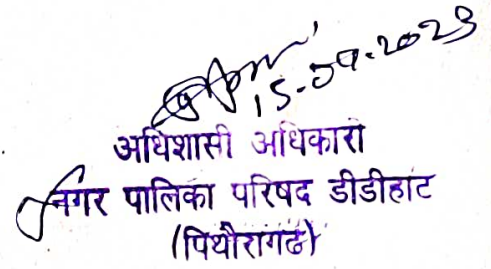 15-09-2023
अधिशासी अधिकारी
नगर पालिका परिषद डीडीहाट
(पिथौरागढ)